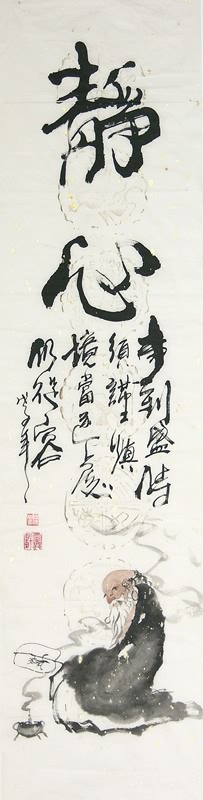 靜心
事到盛時
須謹慎
境當逆處
從容
戊子年